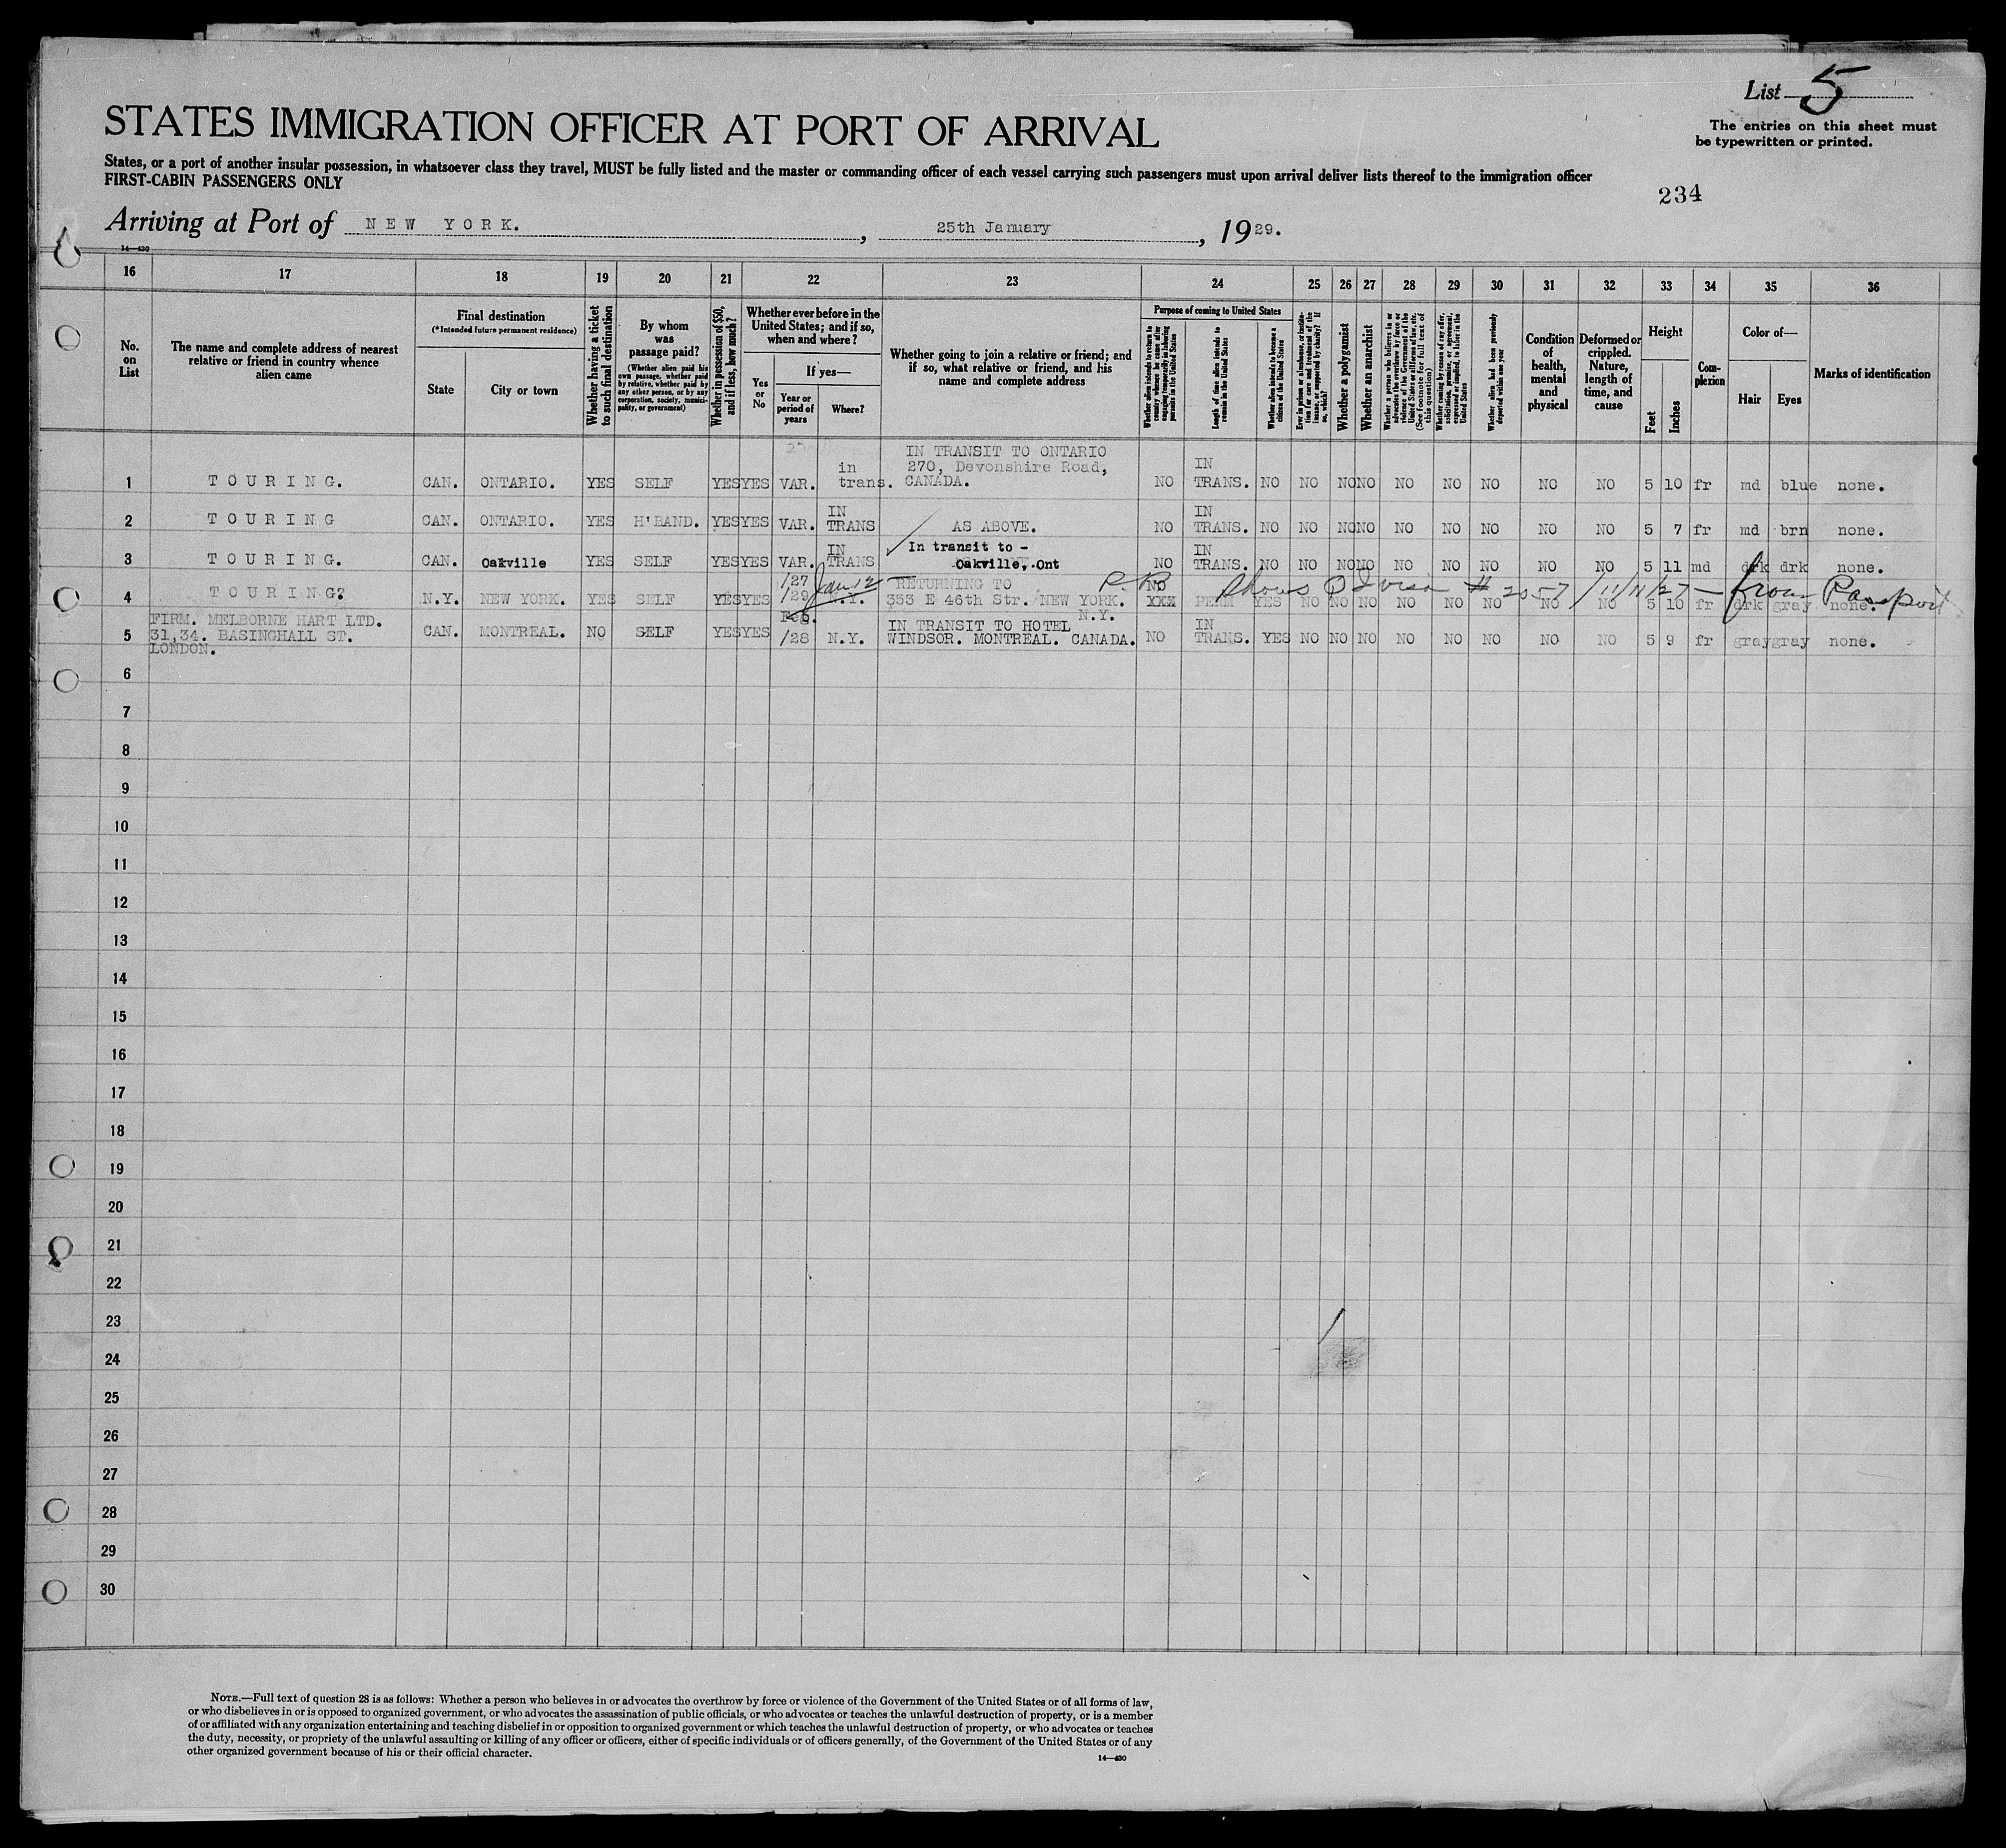 List 5
The entries on this sheet must
be typewritten or printed.
STATES IMMIGRATION OFFICER AT PORT OF ARRIVAL
States, or a port of another insular possession, in whatsoever class they travel, MUST be fully listed and the master or commanding officer of each vessel carrying such passengers must upon arrival deliver lists thereof to the immigration officer
FIRST-CABIN PASSENGERS ONLY
234
Arriving at Port of NEW YORK. , 25th January , 1929.
14—430
16 17 18 19 20 21 22 23 24 25 26 27 28 29 30 31 32 33 34 35 36
No. on List
The name and complete address of nearest relative or friend in country whence alien came
Final destination
(*Intended future permanent residence)
State
City or town
Whether having a ticket to such final destination
By whom was passage paid?
(Whether alien paid his own passage, whether paid by relative, whether paid by any other person, or by any corporation, society, municipality, or government)
Whether in possession of $50, and if less, how much?
Whether ever before in the United States; and if so, when and where?
Yes or No
If yes—
Year or period of years
Where?
Whether going to join a relative or friend; and if so, what relative or friend, and his name and complete address
Purpose of coming to United States
Whether alien intends to return to country whence he came after engaging temporarily in laboring pursuits in the United States
Length of time alien intends to remain in the United States
Whether alien intends to become a citizen of the United States
Ever in prison or almshouse, or institution for care and treatment of the insane, or supported by charity? If so, which?
Whether a polygamist
Whether an anarchist
Whether a person who believes in or advocates the overthrow by force or violence of the Government of the United States or all forms of law, etc. (See footnote for full text of this question)
Whether coming by reason of any offer, solicitation, promise, or agreement, expressed or implied, to labor in the United States
Whether alien had been previously deported within one year
Condition of health, mental and physical
Deformed or crippled. Nature, length of time, and cause
Height
Feet
Inches
Complexion
Color of—
Hair
Eyes
Marks of identification
1 TOURING. CAN. ONTARIO. YES SELF YES YES VAR. in trans. IN TRANSIT TO ONTARIO 270, Devonshire Road, CANADA. NO IN TRANS. NO NO NO NO NO NO NO NO NO 5 10 fr md blue none.
2 TOURING CAN. ONTARIO. YES H'BAND. YES YES VAR. IN TRANS AS ABOVE. NO IN TRANS. NO NO NO NO NO NO NO NO NO 5 7 fr md brn none.
3 TOURING. CAN. Oakville YES SELF YES YES VAR. IN TRANS In transit to - Oakville, Ont NO IN TRANS. NO NO NO NO NO NO NO NO NO 5 11 md drk drk none.
Shows QI visa # 2057 / 11/11/27 — from Passport
4 TOURING? N.Y. NEW YORK. YES SELF YES YES /27 /29 Jan 12 N.Y. RETURNING TO 353 E 46th Str. NEW YORK. N.Y. NO XXX PERM YES NO NO NO NO NO NO NO NO 5 10 fr drk gray none.
5 FIRM. MELBORNE HART LTD. 31,34. BASINGHALL ST. LONDON. CAN. MONTREAL. NO SELF YES YES Feb. /28 N.Y. IN TRANSIT TO HOTEL WINDSOR. MONTREAL. CANADA. NO IN TRANS. YES NO NO NO NO NO NO NO NO 5 9 fr gray gray none.
6
7
8
9
10
11
12
13
14
15
16
17
18
19
20
21
22
23
24
25
26
27
28
29
30
NOTE.—Full text of question 28 is as follows: Whether a person who believes in or advocates the overthrow by force or violence of the Government of the United States or of all forms of law,
or who disbelieves in or is opposed to organized government, or who advocates the assassination of public officials, or who advocates or teaches the unlawful destruction of property, or is a member
of or affiliated with any organization entertaining and teaching disbelief in or opposition to organized government or which teaches the unlawful destruction of property, or who advocates or teaches
the duty, necessity, or propriety of the unlawful assaulting or killing of any officer or officers, either of specific individuals or of officers generally, of the Government of the United States or of any
other organized government because of his or their official character.
14—430